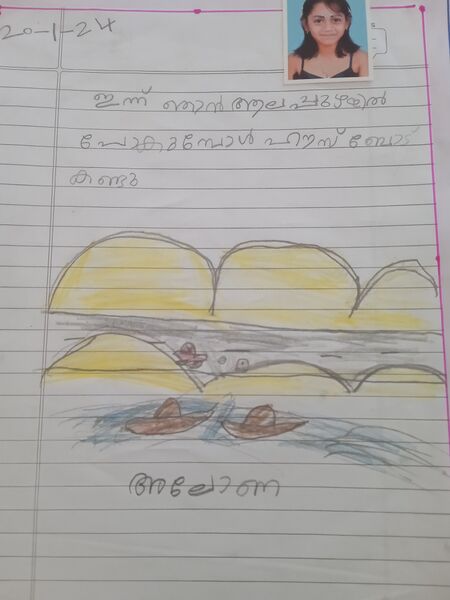 20-1-24
ഇന്ന് ഞാൻ ആലപ്പുഴയിൽ
പോകുമ്പോൾ ഹൗസ് ബോട്ട്
കണ്ടു
അലോണ